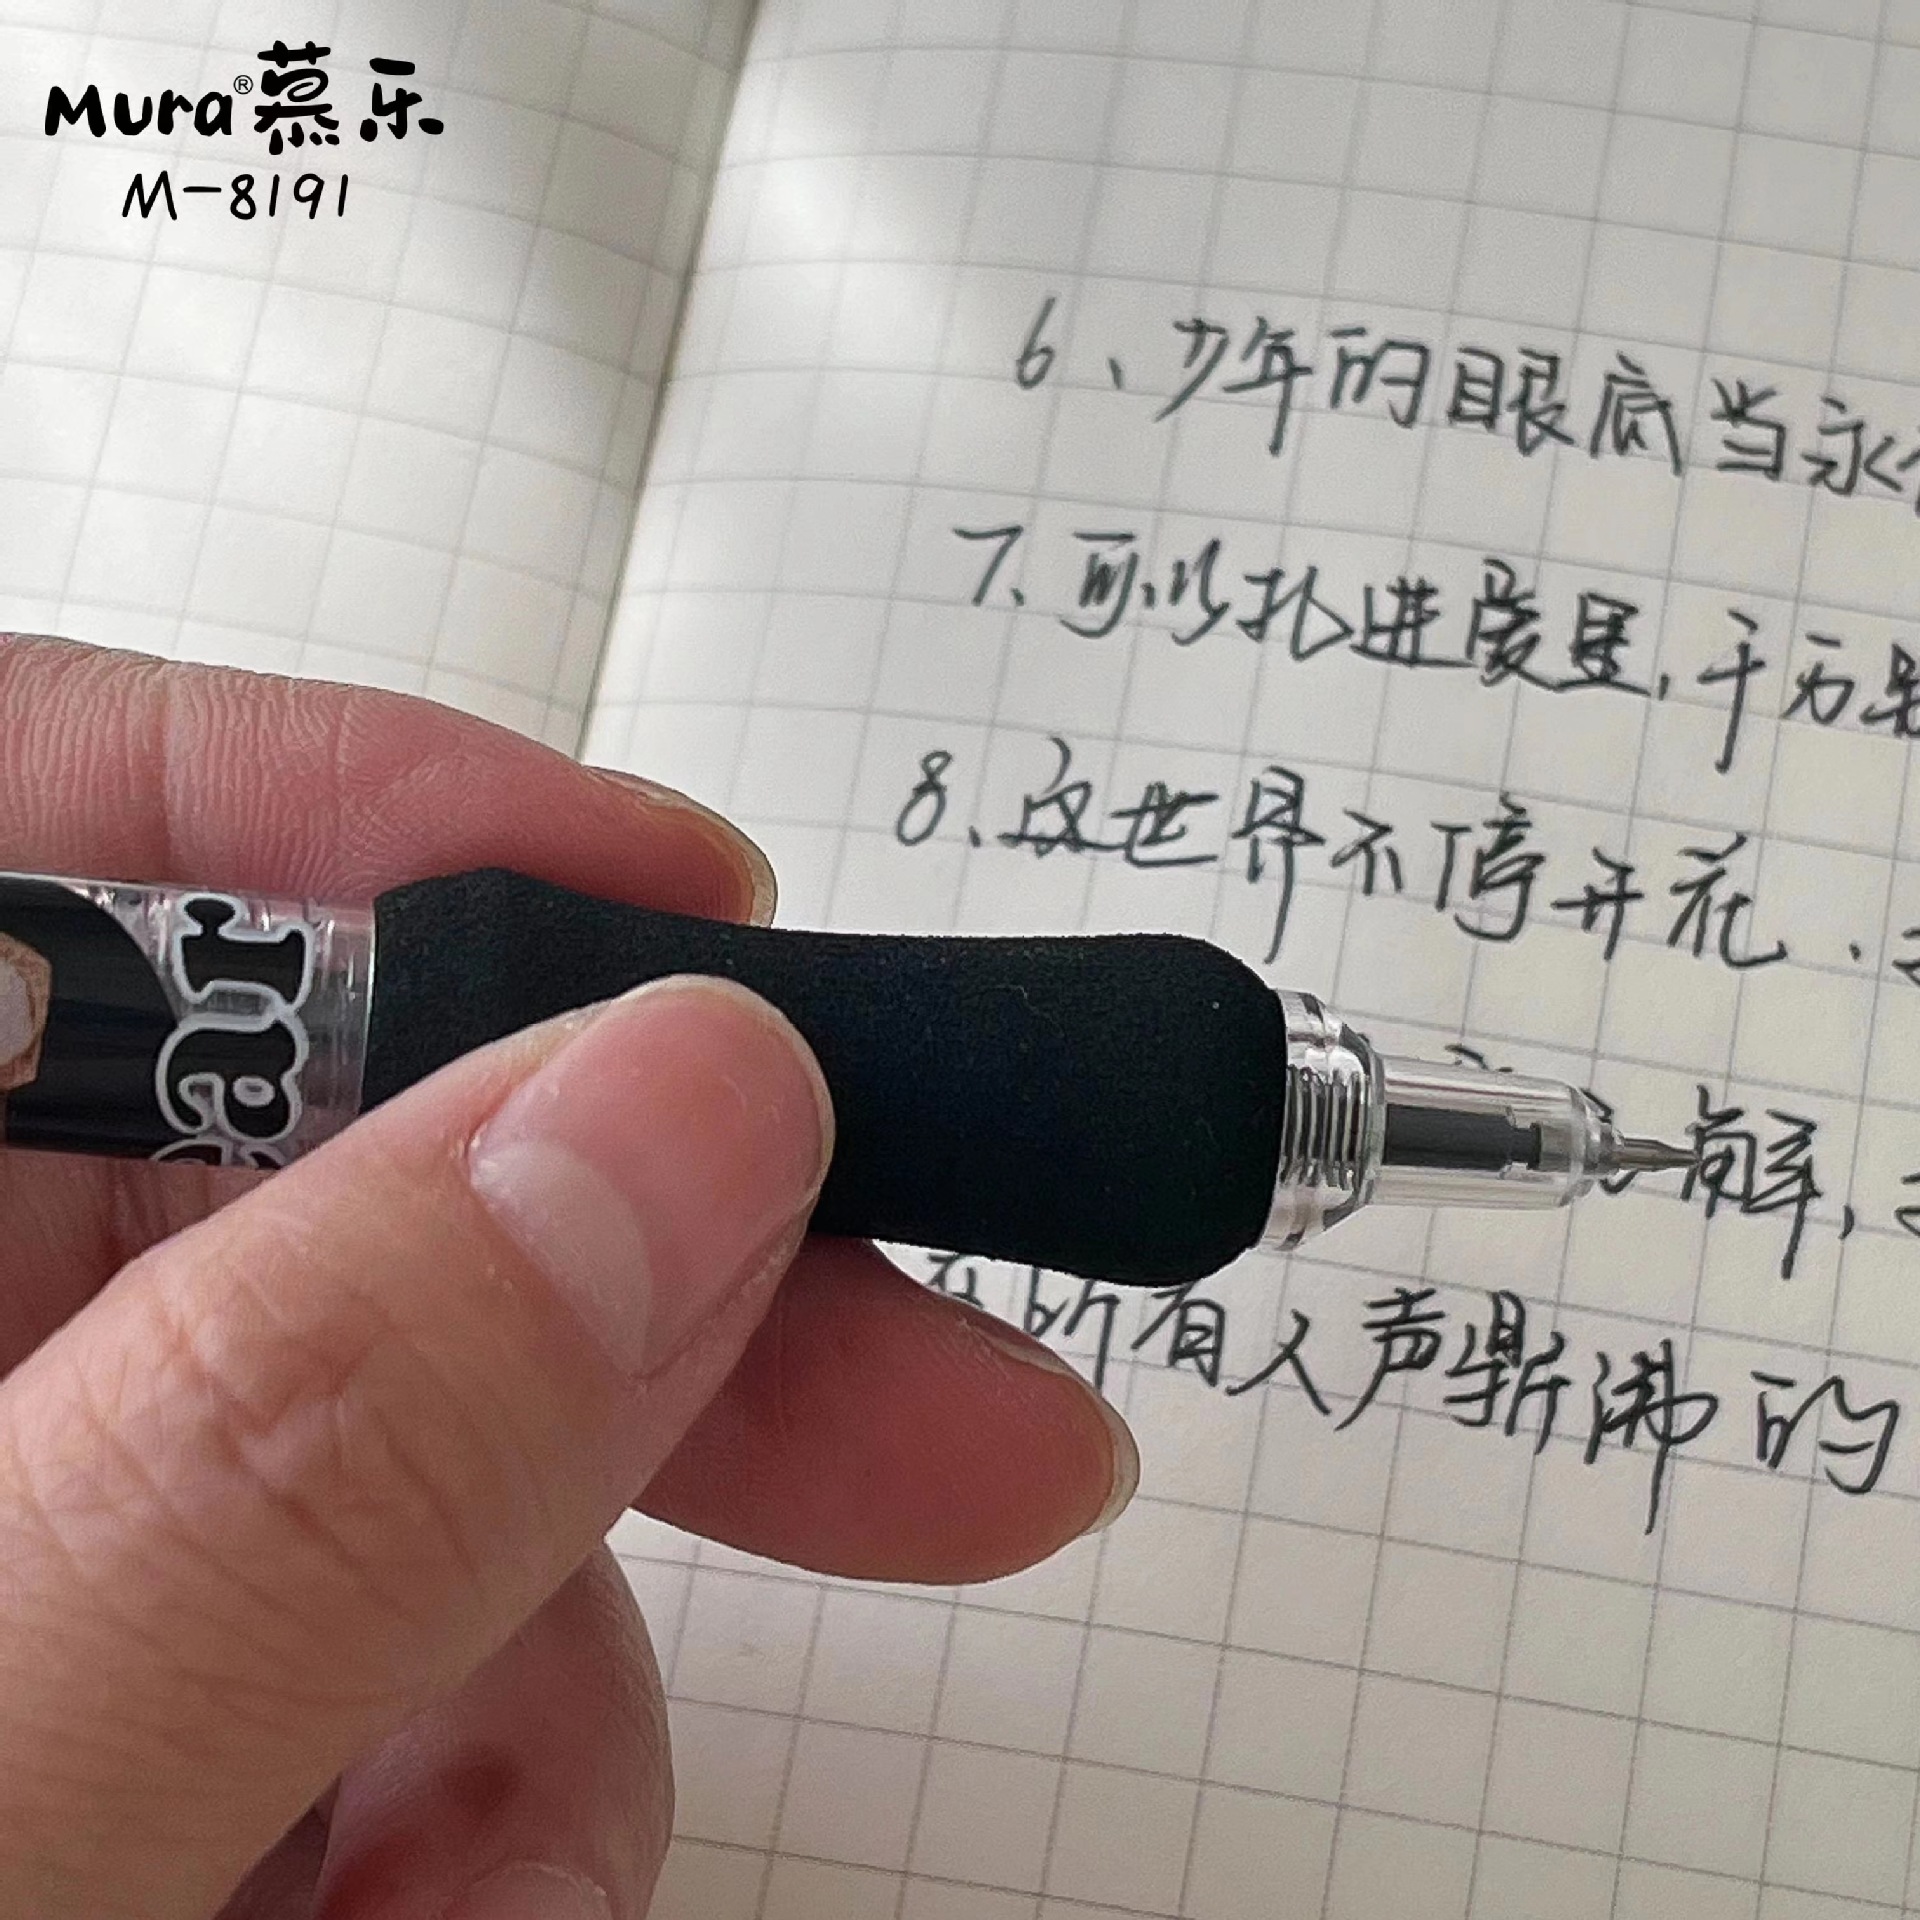 Mura®慕乐
M-8191
6、少年的眼底当永
7、可以扎进爱里,千万别
8、这世界不停开花、
解,
在所有人声鼎沸的